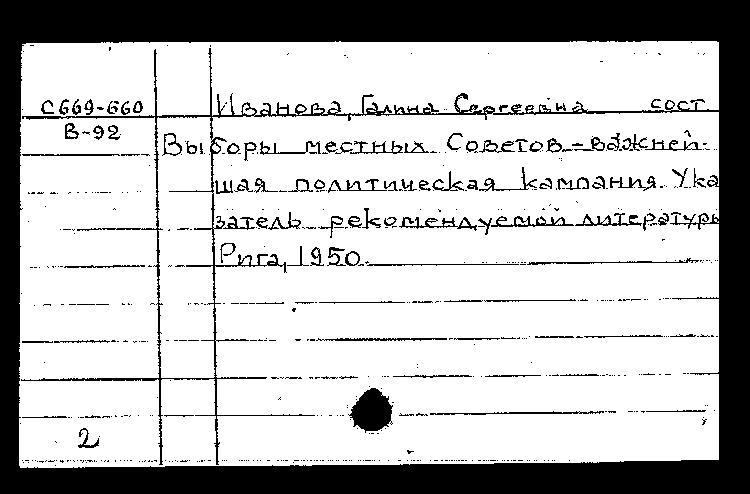 С669-660 Иванова, Галина Сергеевна сост
В-92
Выборы местных Советов - важней-
шая политическая кампания. Ука
затель рекомендуемой литературы
Рига, 1950.
2